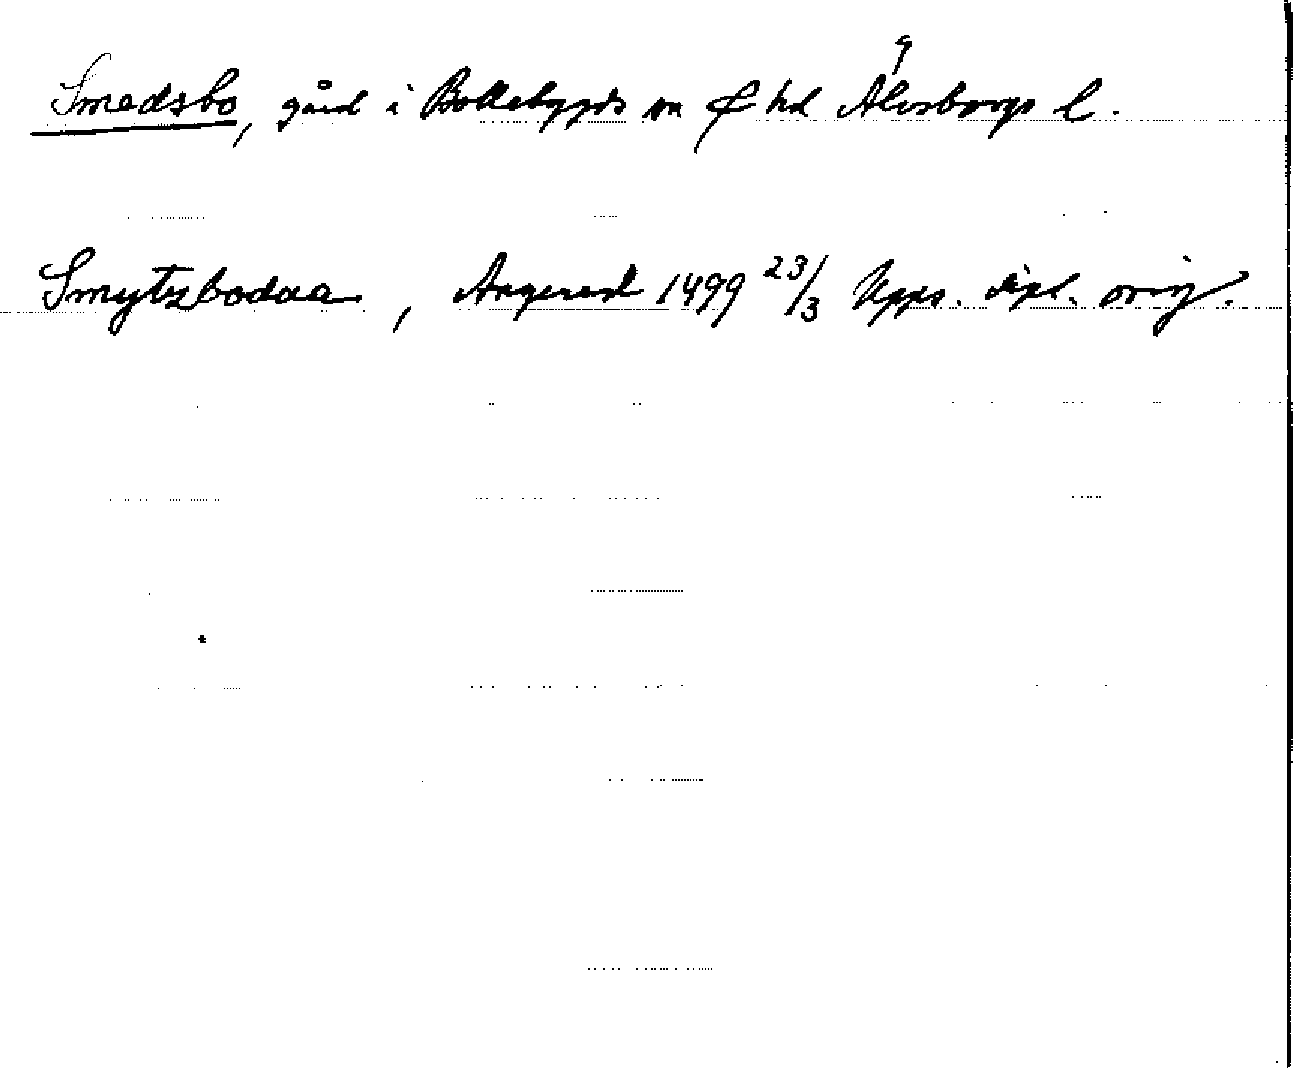 Smedsbo, gård i Bollebygds sn o hd Älvsborgs l.
Smytzbodaa, Angered 1499 23/3 Upps. dipl. orig.